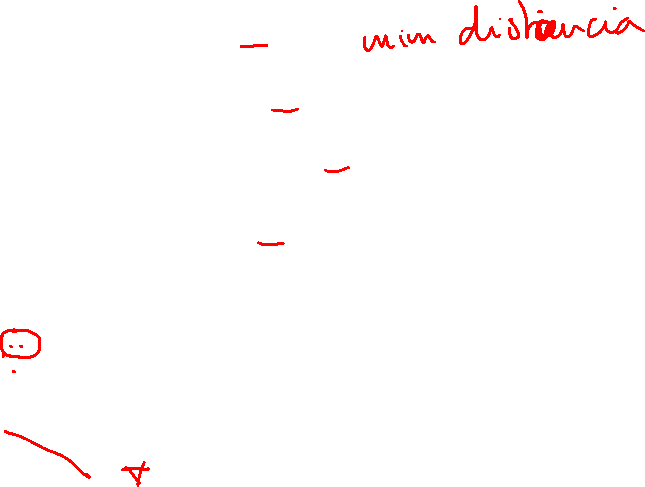 min distancia